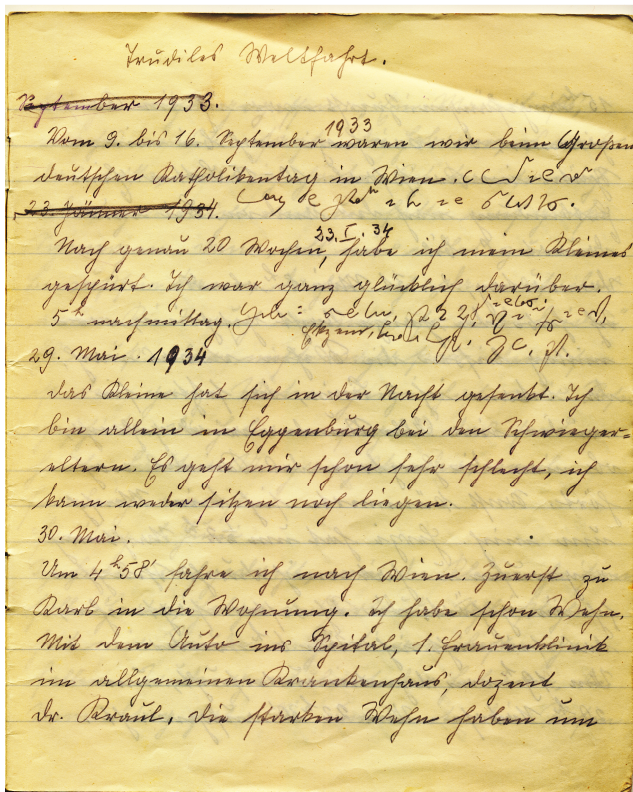 Trudiles Weltfahrt.
September 1933.
1933
Vom 9. bis 16. September waren wir beim Großen
deutschen Katholikentag in Wien.
23. Jänner 1934.
23. I. 34
Nach genau 20 Wochen, habe ich mein Kleines
gespürt. Ich war ganz glücklich darüber.
5h nachmittag.
29. Mai. 1934
Das Kleine hat sich in der Nacht gesenkt. Ich
bin allein in Eggenburg bei den Schwieger=
eltern. Es geht mir schon sehr schlecht, ich
kann weder sitzen noch liegen.
30. Mai.
Um 4h 58' fahre ich nach Wien. Zuerst zu
Karl in die Wohnung. Ich habe schon Wehn.
Mit dem Auto ins Spital, 1. Frauenklinik
im allgemeinen Krankenhaus, Dozent
Dr. Kraul. Die starken Wehn haben um